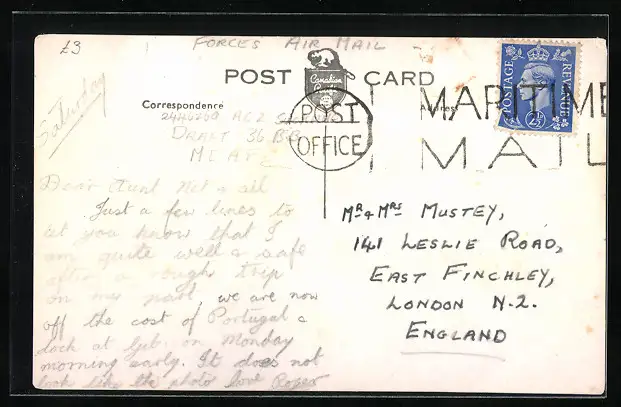 £3
FORCES AIR MAIL
POST CARD
Canadian
Correspondence
Address
POST
OFFICE
MARITIME
MAIL
POSTAGE
REVENUE
2½D
Saturday
2446269 AC2
DRAFT 36 BB
MEAF
Dear Aunt Net & all
Just a few lines to
let you know that I
am quite well & safe
after a rough trip
on my part, we are now
off the cost of Portugal &
dock at Gib. on Monday
morning early. It does not
look like the photo love Roger
MR & MRS MUSTEY,
141 LESLIE ROAD,
EAST FINCHLEY,
LONDON N.2.
ENGLAND